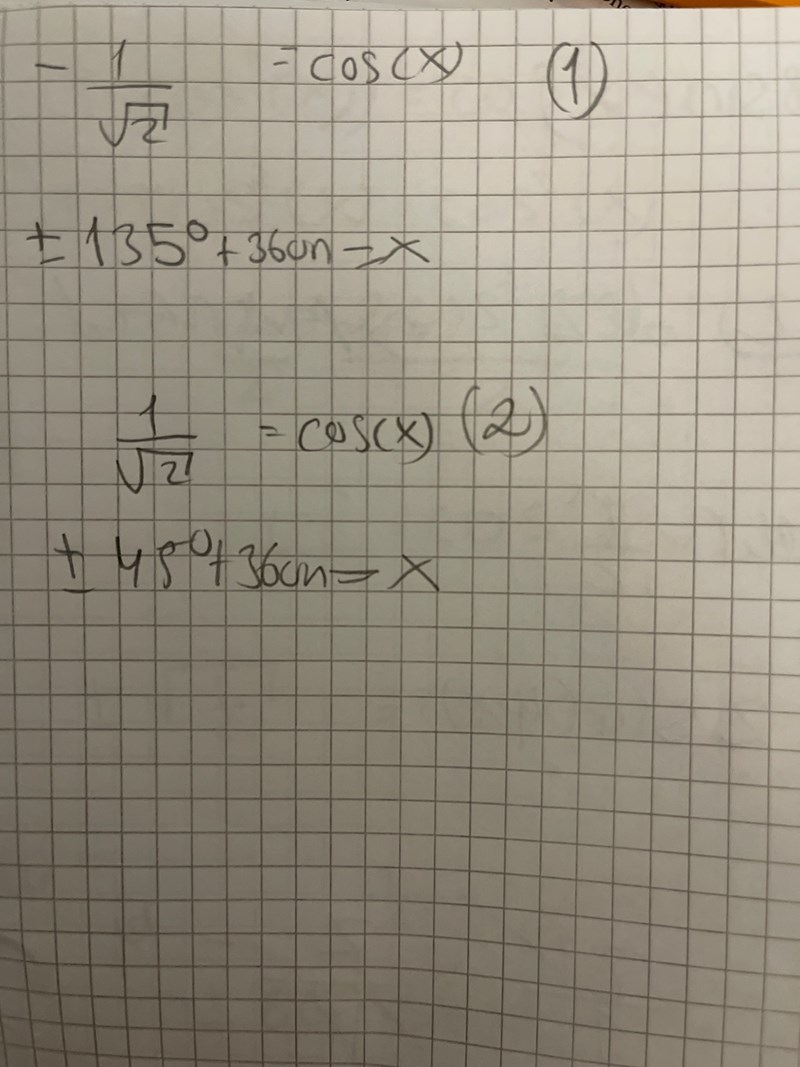 - 1/√2 = cos(x) (1)
± 135° + 360n = x
1/√2 = cos(x) (2)
± 45° + 360n = x